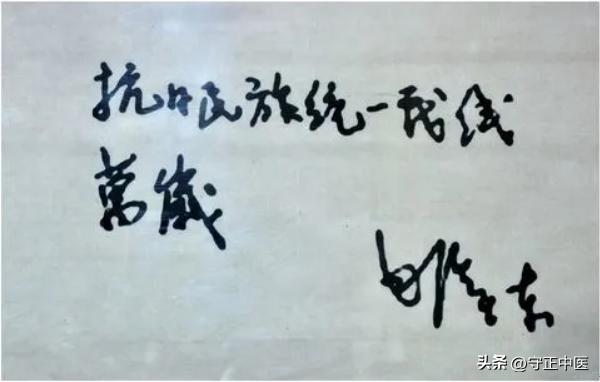 抗日民族统一战线
萬歲
毛泽东
头条 @守正中医